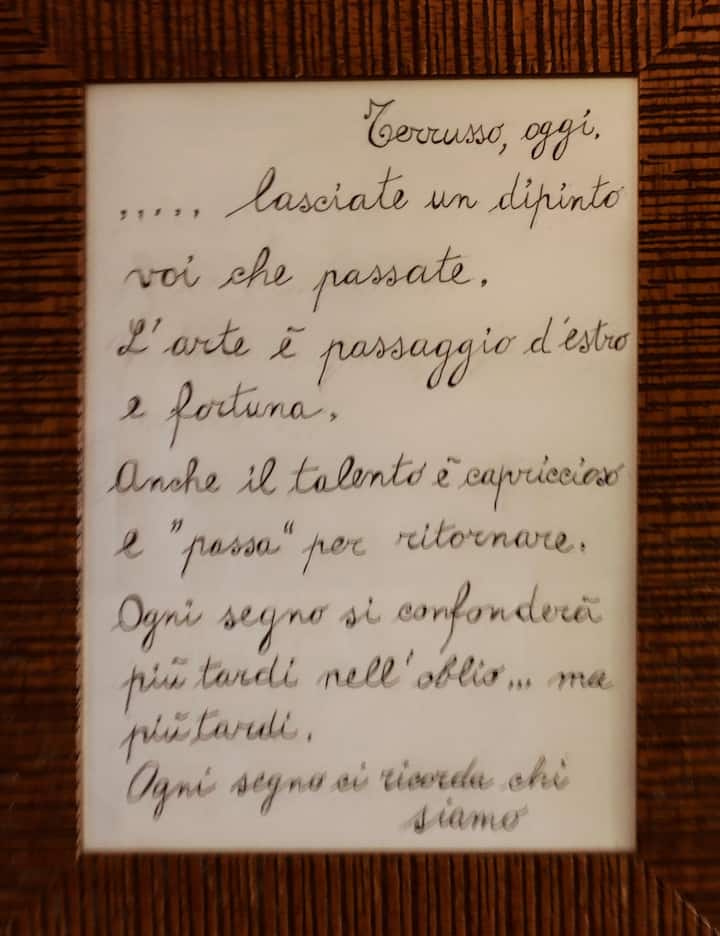 Terrusso, oggi.
..... lasciate un dipinto
voi che passate.
L'arte è passaggio d'estro
e fortuna.
Anche il talento è capriccioso
e "passa" per ritornare.
Ogni segno si confonderà
più tardi nell'oblio... ma
più tardi.
Ogni segno ci ricorda chi
siamo